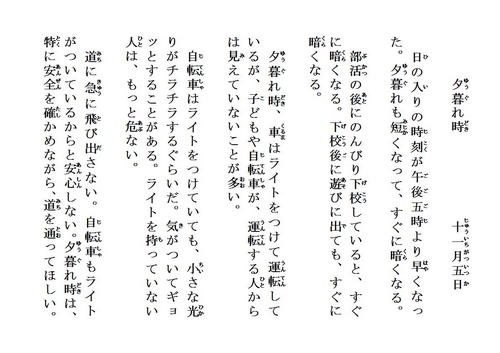 夕暮れ時　十一月五日
日の入りの時刻が午後五時より早くなっ
た。夕暮れも短くなって、すぐに暗くなる。
部活の後にのんびり下校していると、すぐ
に暗くなる。下校後に遊びに出ても、すぐに
暗くなる。
夕暮れ時、車はライトをつけて運転して
いるが、子どもや自転車が、運転する人から
は見えていないことが多い。
自転車はライトをつけていても、小さな光
りがチラチラするぐらいだ。気がついてギョ
ッとすることがある。ライトを持っていない
人は、もっと危ない。
道に急に飛び出さない。自転車もライト
がついているからと安心しない。夕暮れ時は、
特に安全を確かめながら、道を通ってほしい。